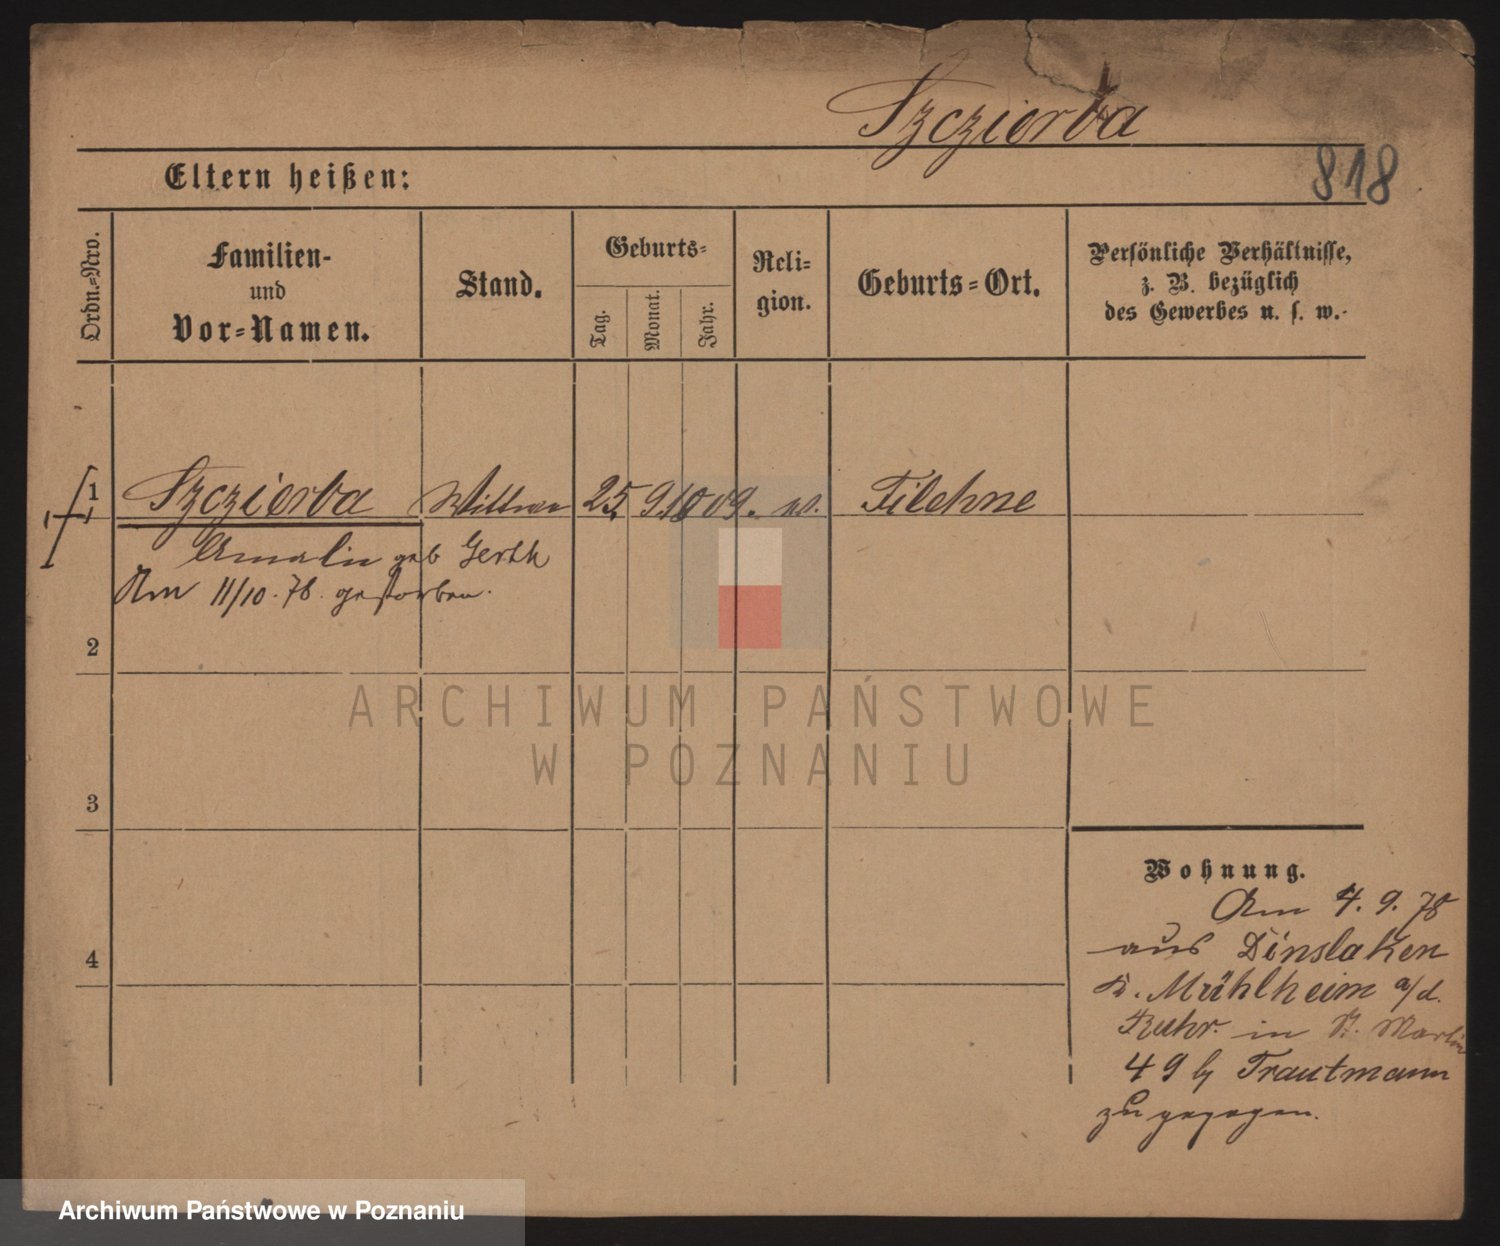 Szczierba
818
Eltern heißen:
Ordn.-Nro.
Familien-
und
Vor-Namen.
Stand.
Geburts-
Tag.
Monat.
Jahr.
Reli-
gion.
Geburts-Ort.
Persönliche Verhältnisse,
z. B. bezüglich
des Gewerbes u. s. w.
1 Szczierba Wittwe 25. 9. 1809. Filehne
Amalie geb Gerth
Am 11/10. 78. gestorben.
2
ARCHIWUM PAŃSTWOWE
W POZNANIU
3
Wohnung.
Am 4. 9. 78
aus Dinslaken
K. Mühlheim a/d.
Ruhr. in St. Martin
49 b/ Trautmann
zugezogen.
4
Archiwum Państwowe w Poznaniu